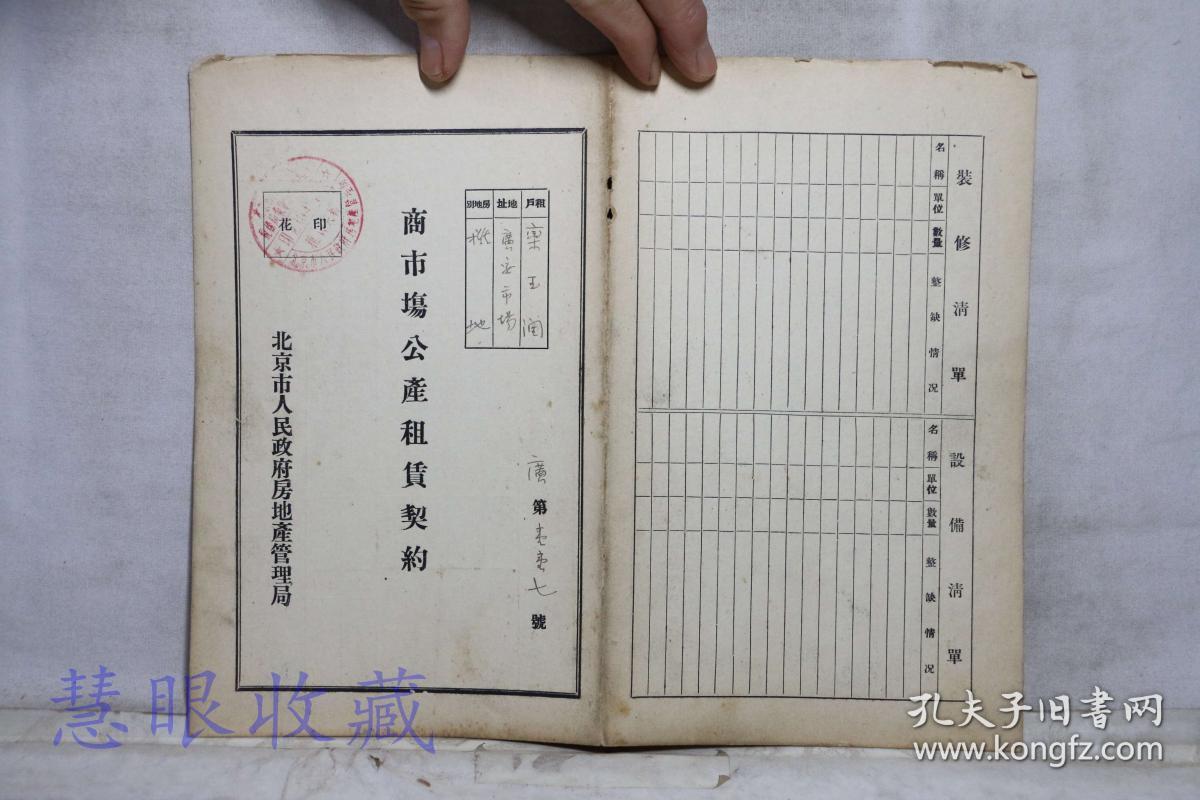 租戶
地址
房地別
栾玉润
廣安市場
攤地
商市場公產租賃契約
廣第壹壹七號
印花
北京市人民政府房地產管理局
裝修清單
名稱 單位 數量 整缺情况
設備清單
名稱 單位 數量 整缺情况
慧眼收藏
孔夫子旧書网
www.kongfz.com